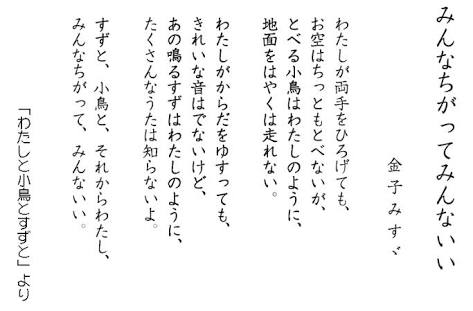 みんなちがってみんないい
金子みすゞ
わたしが両手をひろげても、
お空はちっともとべないが、
とべる小鳥はわたしのように、
地面をはやくは走れない。
わたしがからだをゆすっても、
きれいな音はでないけど、
あの鳴るすずはわたしのように、
たくさんなうたは知らないよ。
すずと、小鳥と、それからわたし、
みんなちがって、みんないい。
「わたしと小鳥とすずと」より